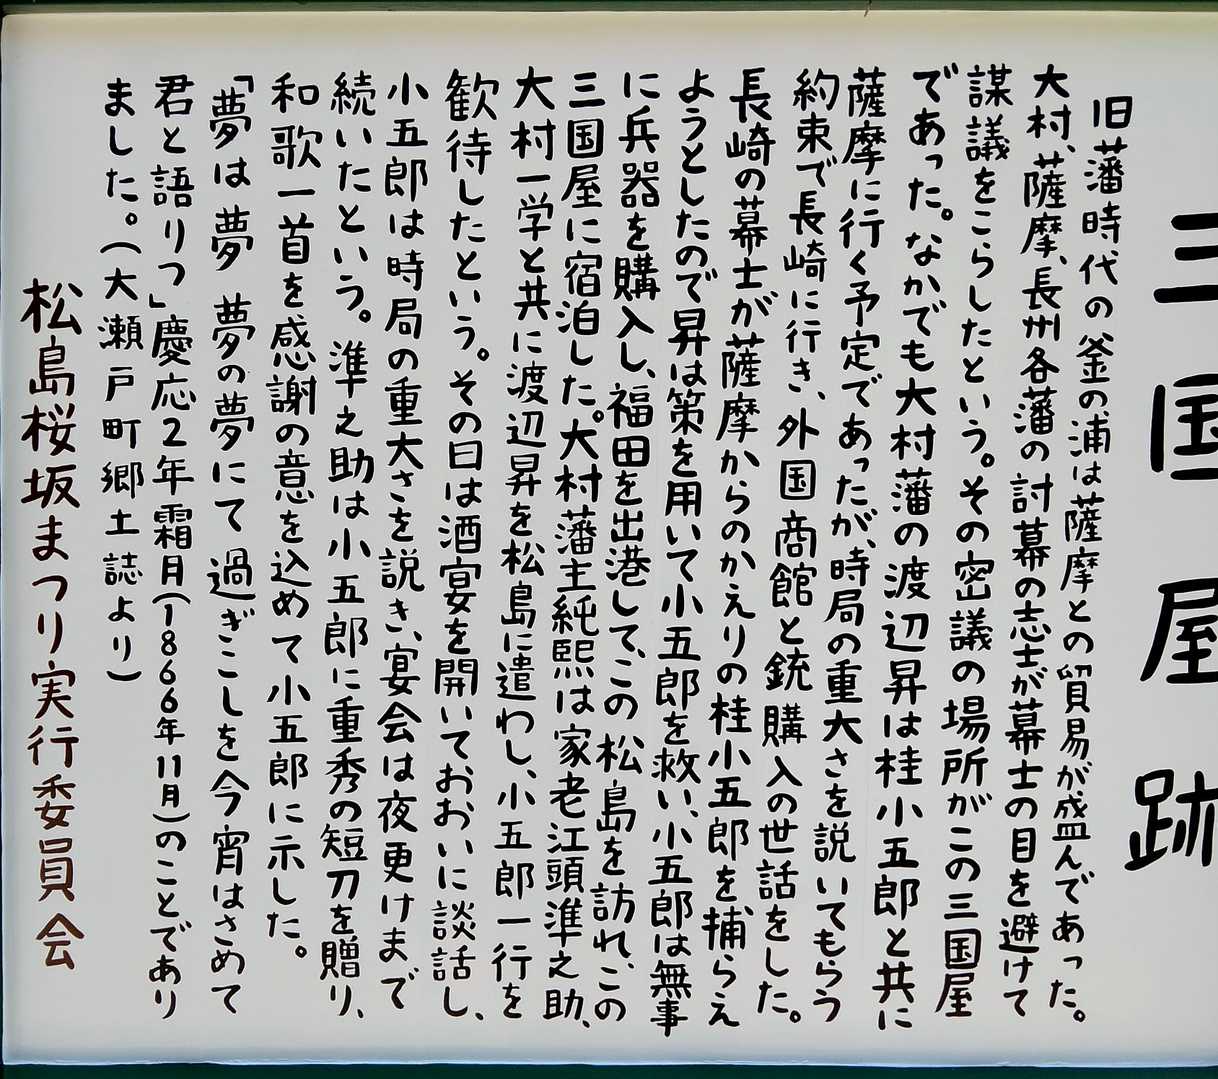 三国屋跡
旧藩時代の釜の浦は薩摩との貿易が盛んであった。
大村、薩摩、長州各藩の討幕の志士が幕士の目を避けて
謀議をこらしたという。その密議の場所がこの三国屋
であった。なかでも大村藩の渡辺昇は桂小五郎と共に
薩摩に行く予定であったが、時局の重大さを説いてもらう
約束で長崎に行き、外国商館と銃購入の世話をした。
長崎の幕士が薩摩からのかえりの桂小五郎を捕らえ
ようとしたので昇は策を用いて小五郎を救い、小五郎は無事
に兵器を購入し、福田を出港して、この松島を訪れ、この
三国屋に宿泊した。大村藩主純熙は家老江頭準之助、
大村一学と共に渡辺昇を松島に遣わし、小五郎一行を
歓待したという。その日は酒宴を開いておおいに談話し、
小五郎は時局の重大さを説き、宴会は夜更けまで
続いたという。準之助は小五郎に重秀の短刀を贈り、
和歌一首を感謝の意を込めて小五郎に示した。
「夢は夢 夢の夢にて過ぎこしを今宵はさめて
君と語りつ」慶応2年霜月(1866年11月)のことであり
ました。(大瀬戸町郷土誌より)
松島桜坂まつり実行委員会